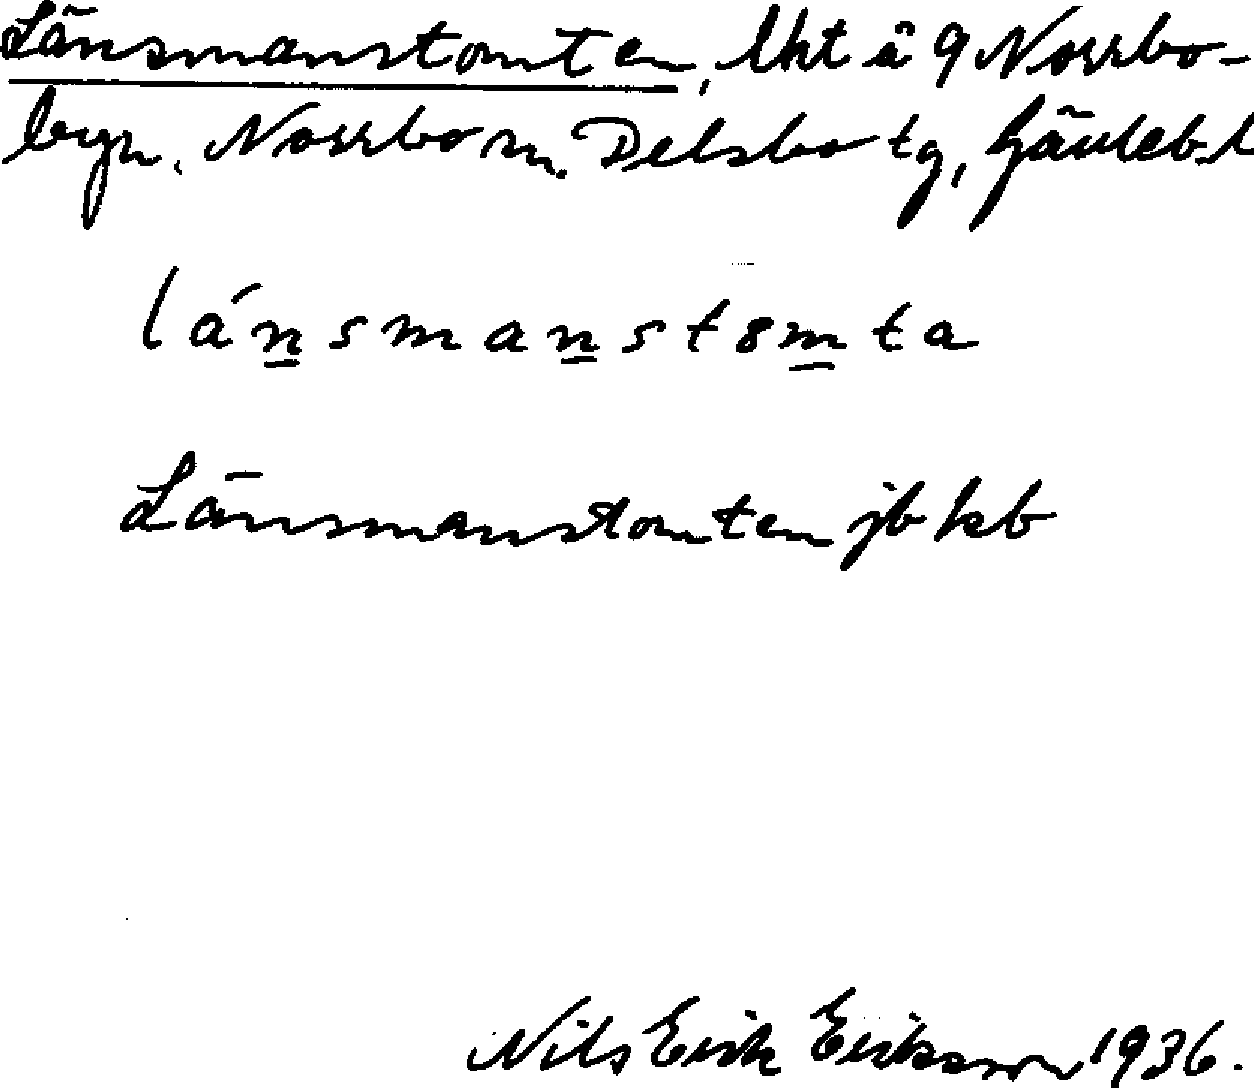 Länsmanstomten, lht å 9 Norrbo-
byn, Norrbo sn. Delsbo tg, Gävleb. l
lánsmanstomta
Länsmanstomten jb kb
Nils Erik Eriksson 1936.